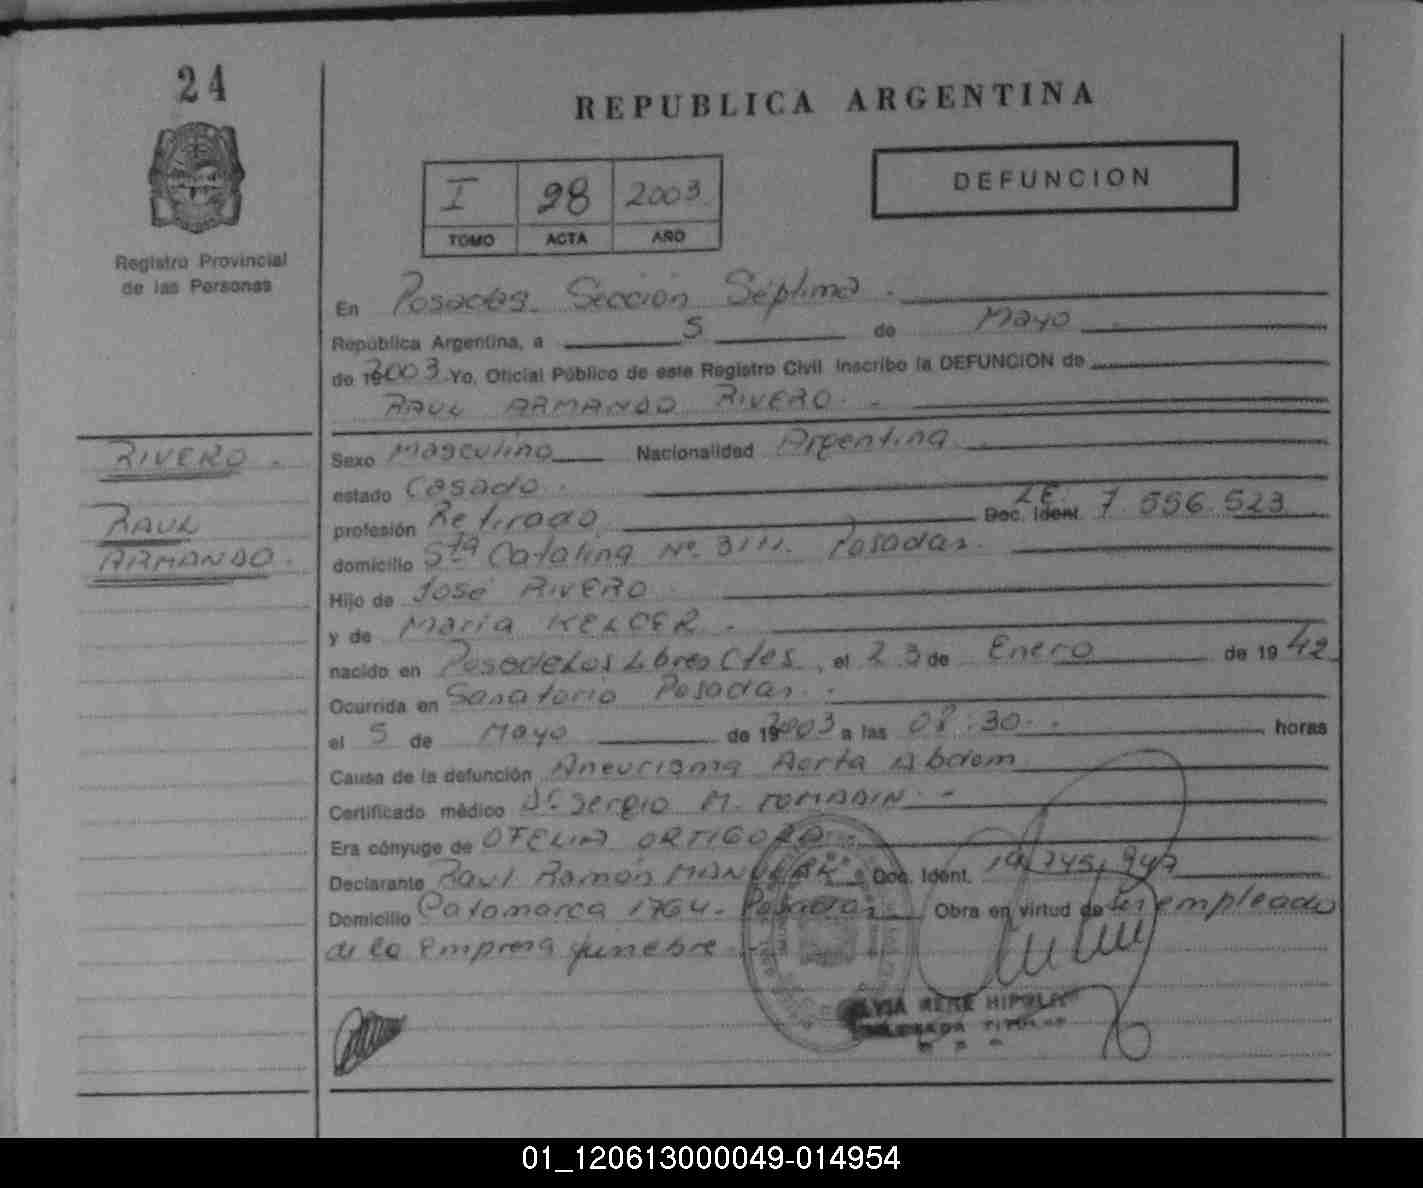 24
REPUBLICA ARGENTINA
I 98 2003
TOMO ACTA AÑO
DEFUNCION
Registro Provincial
de las Personas
En Posadas. Sección Séptima.
República Argentina, a 5 de Mayo
de 2003 Yo, Oficial Público de este Registro Civil inscribo la DEFUNCION de
RAUL ARMANDO RIVERO.
RIVERO.
RAUL
ARMANDO.
Sexo Masculino Nacionalidad Argentina
estado Casado.
profesión Retirado L.E. Doc. Ident. 7.556.523
domicilio Sta Catalina Nº 3111. Posadas.
Hijo de José RIVERO
y de María KELCER.
nacido en Paso de Los Libres Ctes. el 23 de Enero de 1942
Ocurrida en Sanatorio Posadas.
el 5 de Mayo de 2003 a las 08:30. horas
Causa de la defunción Aneurisma Aorta Abdom
Certificado médico Dr Sergio M. TOMADIN.
Era cónyuge de OFELIA ORTIGOZA
Declarante Raul Ramón Doc. Ident. 19.245.947
Domicilio Catamarca 1764. Posadas Obra en virtud de ser empleado
de la Empresa funebre
RENE HIPOLIT
TITULAR
01_120613000049-014954